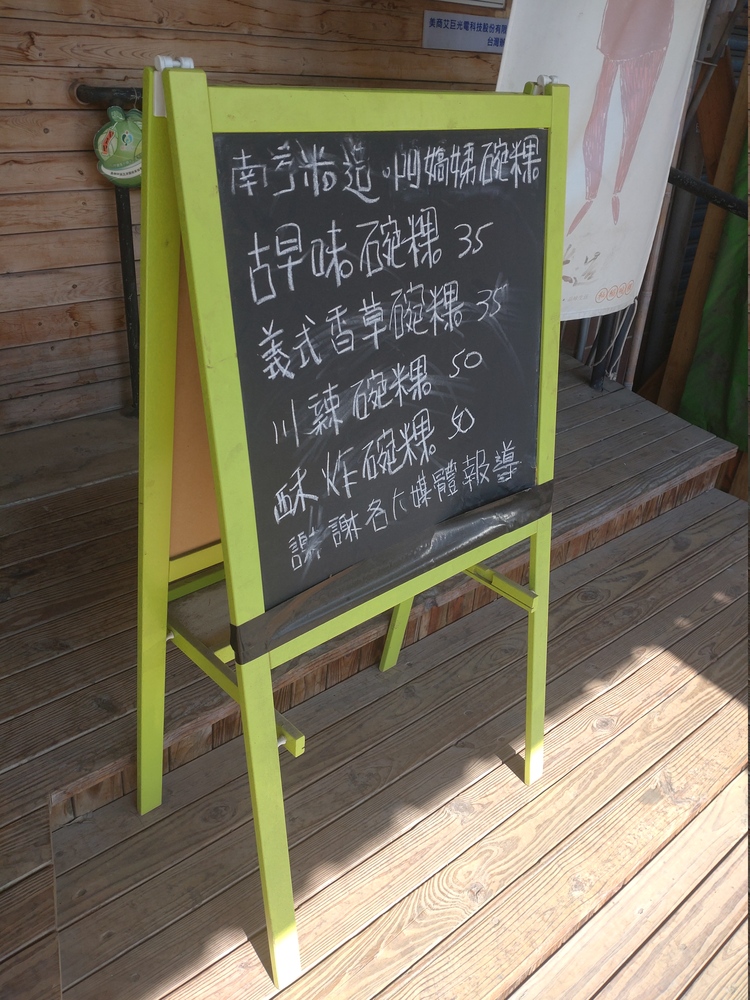 美商艾巨光電科技股份有限
台灣
南亨米造·阿嬌姨碗粿
古早味碗粿 35
義式香草碗粿 35
川辣碗粿 50
酥炸碗粿 50
謝謝各大媒體報導